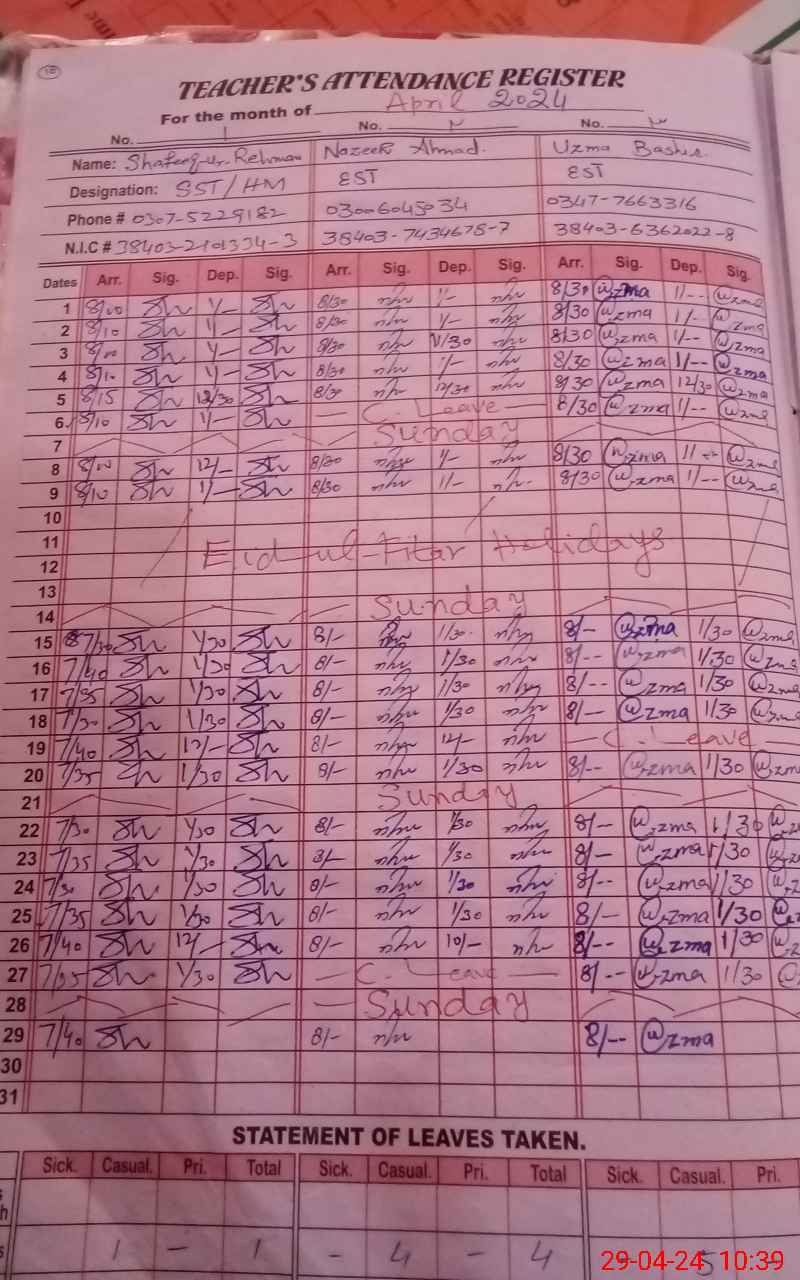 18
TEACHER'S ATTENDANCE REGISTER
For the month of April 2024
No. 1 No. 2 No. 3
Name: Shafeeq-ur-Rehman Nazeer Ahmad. Uzma Bashir
Designation: SST/HM EST EST
Phone # 0307-5229182 03006045034 0347-7663316
N.I.C # 38403-2101334-3 38403-7434678-7 38403-6362022-8
Dates Arr. Sig. Dep. Sig. Arr. Sig. Dep. Sig. Arr. Sig. Dep. Sig.
1 8/00 1/- 8/30 1/- 8/30 Uzma 1/-- Uzma
2 8/10 1/- 8/30 1/- 8/30 Uzma 1/- Uzma
3 8/00 1/- 8/30 1/30 8/30 Uzma 1/-- Uzma
4 8/10 1/- 8/30 1/- 8/30 Uzma 1/-- Uzma
5 8/15 12/30 8/30 12/30 8/30 Uzma 12/30 Uzma
6 8/10 1/- C. Leave 8/30 Uzma 1/-- Uzma
7 Sunday
8 8/00 12/- 8/30 1/- 8/30 Uzma 1/-- Uzma
9 8/10 1/- 8/30 1/- 8/30 Uzma 1/-- Uzma
10
11 Eid-ul-Fitar Holidays
12
13
14 Sunday
15 7/30 1/30 8/- 1/30 8/- Uzma 1/30 Uzma
16 7/40 1/30 8/- 1/30 8/-- Uzma 1/30 Uzma
17 7/35 1/30 8/- 1/30 8/-- Uzma 1/30 Uzma
18 7/30 1/30 8/- 1/30 8/-- Uzma 1/30 Uzma
19 7/40 12/- 8/- 12/- C. Leave
20 7/35 1/30 8/- 1/30 8/-- Uzma 1/30 Uzma
21 Sunday
22 7/30 1/30 8/- 1/30 8/- Uzma 1/30
23 7/35 1/30 8/- 1/30 8/- Uzma 1/30
24 7/30 1/30 8/- 1/30 8/-- Uzma 1/30
25 7/35 1/30 8/- 1/30 8/- Uzma 1/30
26 7/40 12/- 8/- 10/- 8/-- Uzma 1/30
27 7/35 1/30 C. Leave 8/-- Uzma 1/30
28 Sunday
29 7/40 8/- 8/-- Uzma
30
31
STATEMENT OF LEAVES TAKEN.
Sick. Casual. Pri. Total Sick. Casual. Pri. Total Sick. Casual. Pri.
1 - 1 - 4 - 4 5
29-04-24 10:39